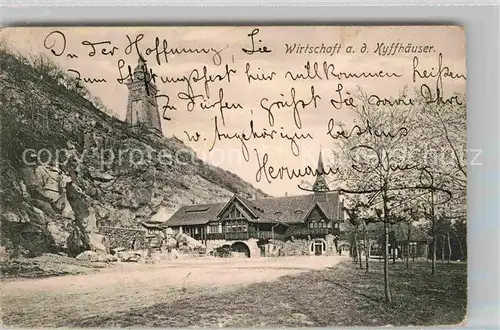 Wirtschaft a. d. Kyffhäuser.
In der Hoffnung, Sie
zum Stiftungsfest hier willkommen heißen
zu dürfen grüßt Sie sowie Ihre
w. Angehörigen bestens
Hermann